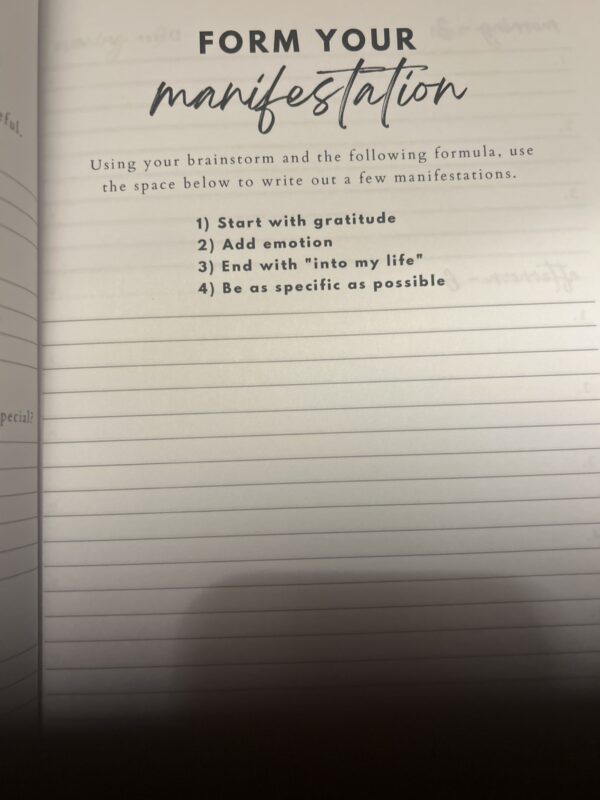 FORM YOUR
manifestation
Using your brainstorm and the following formula, use
the space below to write out a few manifestations.
1) Start with gratitude
2) Add emotion
3) End with "into my life"
4) Be as specific as possible
eful.
pecial?